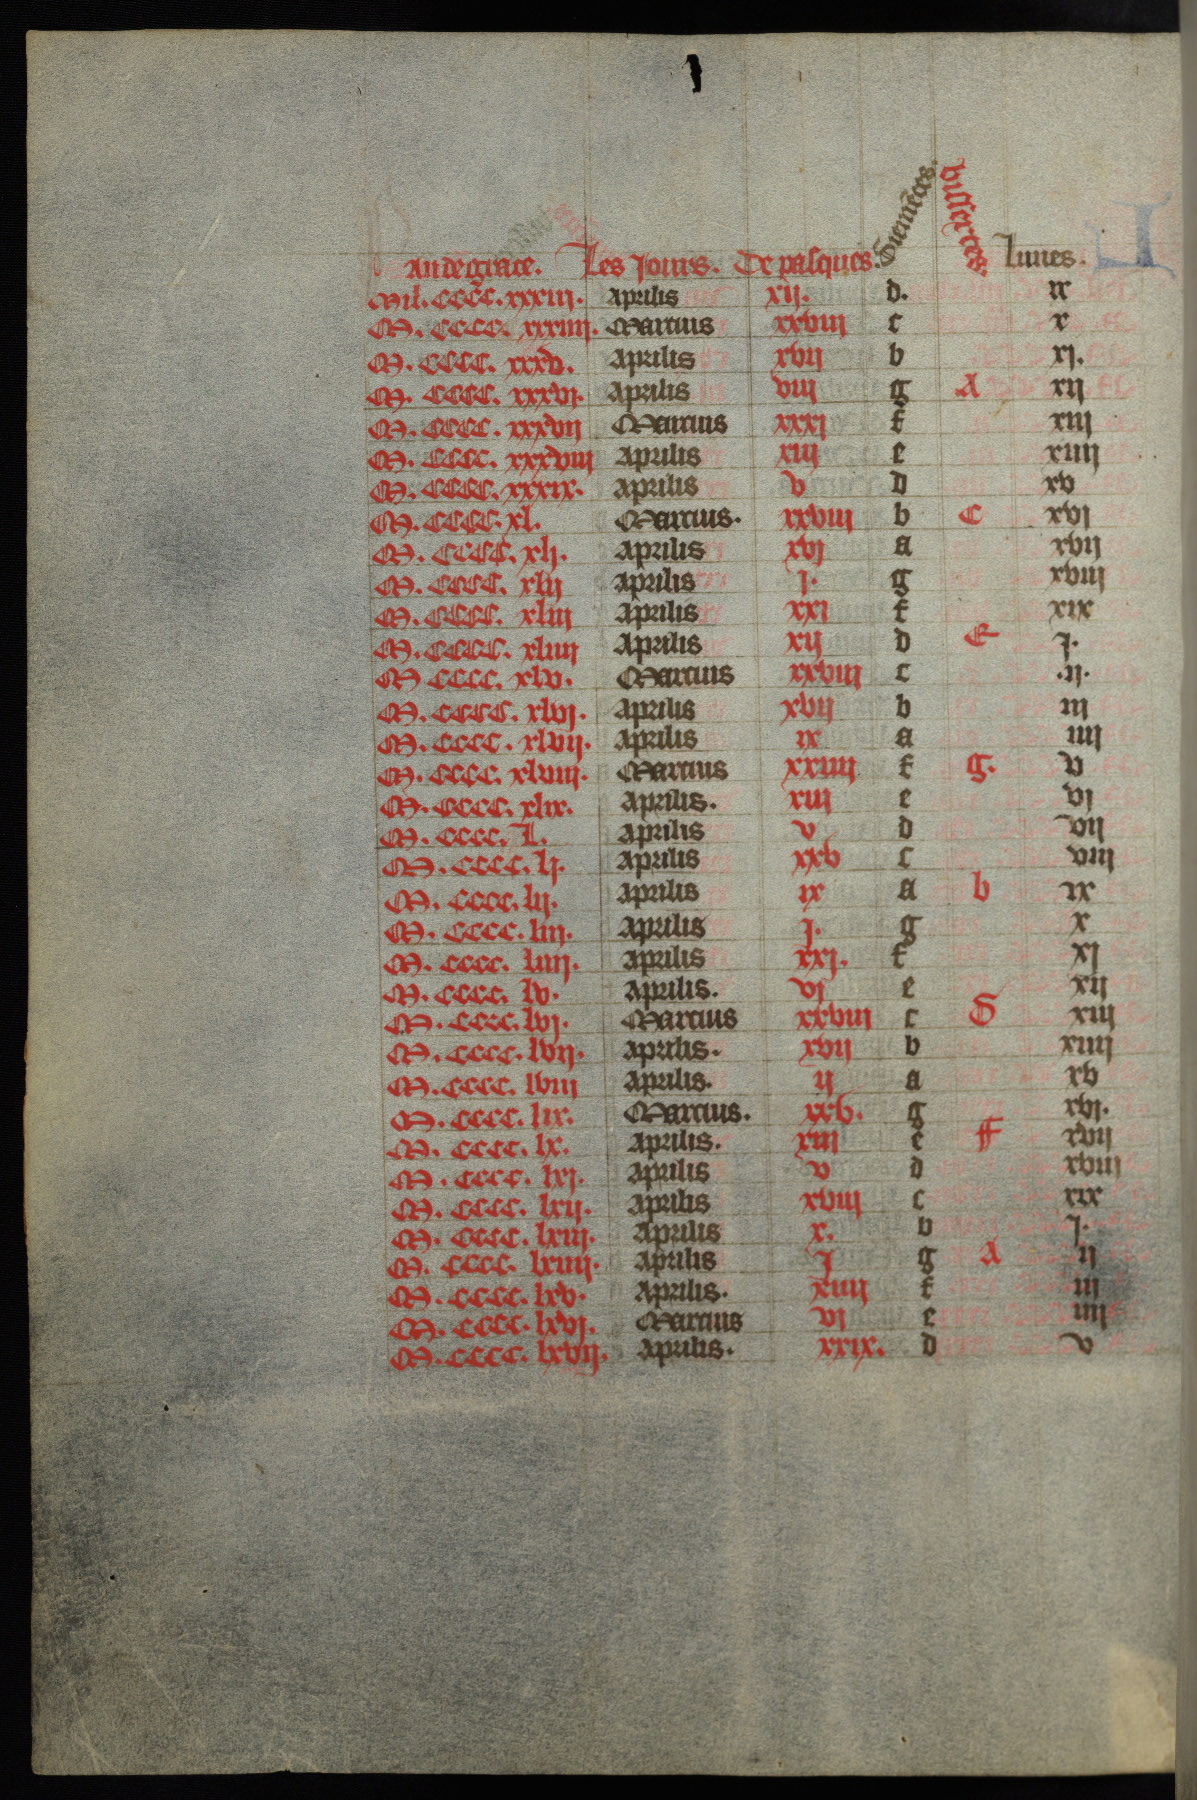 An de grace. Les Jours. De pasques. Diemēces. bissextes. Lunes.
Mil. CCCC. xxxiij. Aprilis xij. d. ix
M. CCCC. xxxiiij. Marcius xxviij c x
M. CCCC. xxxv. Aprilis xvij b xj.
M. CCCC. xxxvj. Aprilis viij g A xij
M. CCCC. xxxvij Marcius xxxj f xiij
M. CCCC. xxxviij Aprilis xiij e xiiij
M. CCCC. xxxix. Aprilis v d xv
M. CCCC. xl. Marcius. xxviij b c xvj
M. CCCC. xlj. Aprilis xvj a xvij
M. CCCC. xlij Aprilis j. g xviij
M. CCCC. xliij Aprilis xxj f xix
M. CCCC. xliiij Aprilis xij d E j.
M CCCC. xlv. Marcius xxviij c .ij.
M. CCCC. xlvj. Aprilis xvij b iij
M. CCCC. xlvij. Aprilis ix a iiij
M. CCCC. xlviij. Marcius xxiiij f g. v
M. CCCC. xlix. Aprilis. xiij e vj
M. CCCC. L. Aprilis v d vij
M. CCCC. lj. Aprilis xxv c viij
M. CCCC. lij. Aprilis ix a b ix
M. CCCC. liij. Aprilis j. g x
M. CCCC. liiij. Aprilis xxj. f xj
M. CCCC. lv. Aprilis. vj e xij
M. CCCC. lvj. Marcius xxviij c D xiij
M. CCCC. lvij. Aprilis. xvij b xiiij
M. CCCC. lviij Aprilis. ij a xv
M. CCCC. lix. Marcius. xxv. g xvj.
M. CCCC. lx. Aprilis. xiij e ff xvij
M. CCCC. lxj. Aprilis v d xviij
M. CCCC. lxij. Aprilis xviij c xix
M. CCCC. lxiij. Aprilis x. b j.
M. CCCC. lxiiij. Aprilis j g A ij
M. CCCC. lxv. Aprilis. xiiij f iij
M. CCCC. lxvj. Marcius vj e iiij
M. CCCC. lxvij. Aprilis. xxix. d v